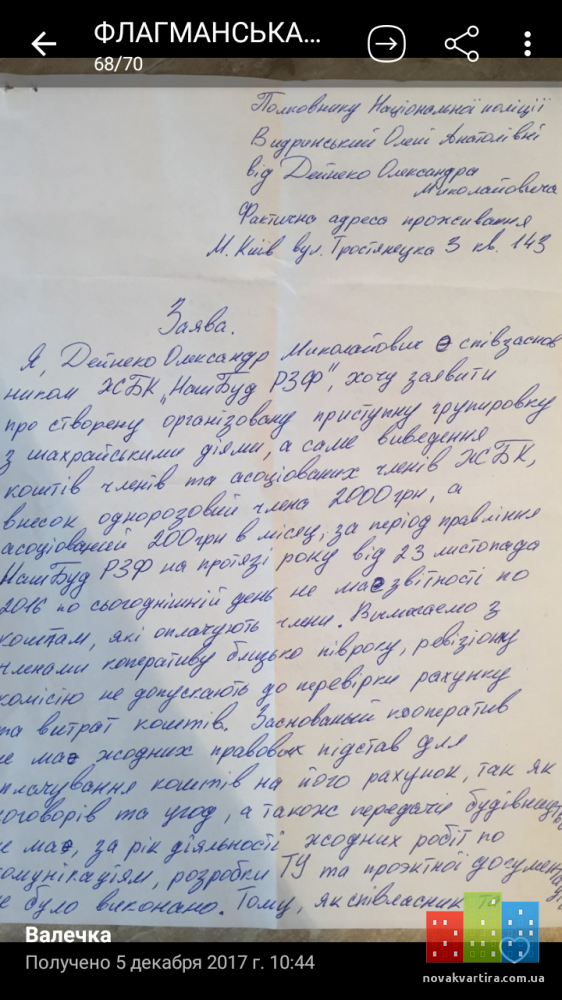 ФЛАГМАНСЬКА...
68/70
Полковнику Національної поліції
Видринський Олені Анатоліївні
від Дейнеко Олександра
Миколайовича
Фактична адреса проживання
М. Київ вул. Тростянецка 3 кв. 143
Заява.
Я, Дейнеко Олександр Миколайович є співзаснов
ником ЖСБК „НашБуд РЗФ", хочу заявити
про створену організовану приступну групировку
з шахрайськими діями, а саме виведення
коштів членів та асоціованих членів ЖСБК,
внесок одноразовий члена 2000 грн, а
асоціований 200 грн в місяц, за період правління
НашБуд РЗФ на протязі року від 23 листопада
2016 по сьогоднішній день не має звітності по
коштам, які оплачують члени. Вимагаємо з
членами коперативу близько півроку, ревізіону
комісію не допускають до перевірки рахунку
та витрат коштів. Заснований кооператив
не має жодних правових підстав для
плачування коштів на його рахунок, так як
оговорів та угод, а також передачи будівницт
не має, за рік діяльності жодних робіт по
комунікаціям, розробки ТУ та проэктної докумен
не було виконано. Тому, як співласник
Валечка
Получено 5 декабря 2017 г. 10:44
novakvartira.com.ua